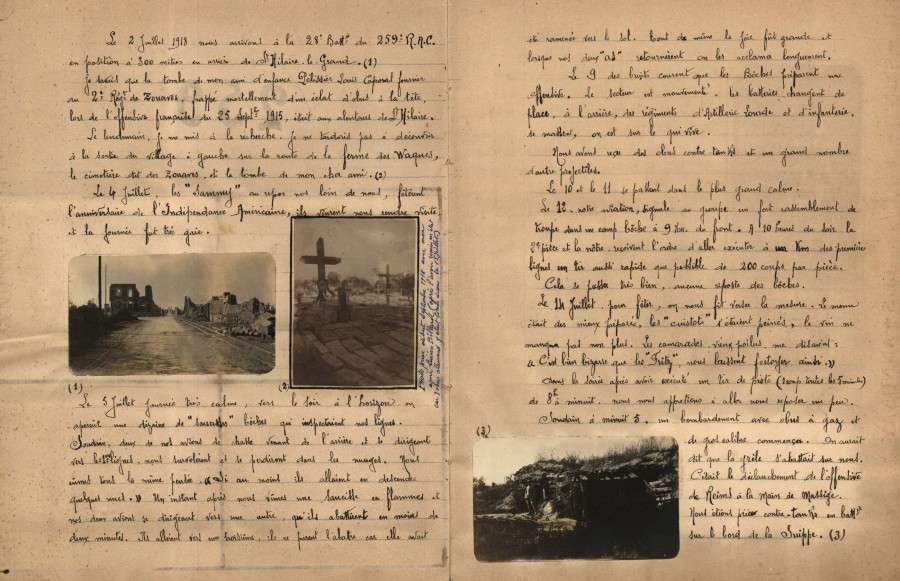 Le 2 Juillet 1918 nous arrivons à la 28e Battie du 259e R.A.C.
en position à 300 mètres en arrière de St Hilaire-le-Grand. (1)
Je savais que la tombe de mon ami d'enfance Pélissier Louis Caporal fourrier
au 2e Régt de Zouaves, frappé mortellement d'un éclat d'obus à la tête,
lors de l'offensive française du 25 Septbre 1915, était aux alentours de St Hilaire.
Le lendemain, je me mis à la recherche. Je ne tardais pas à découvrir
à la sortie du village à gauche sur la route de la ferme des Wagues,
le cimetière dit des Zouaves, et la tombe de mon cher ami. (2)
Le 4 Juillet, les "Sammy" au repos non loin de nous, fêtèrent
l'anniversaire de l'Indépendance Américaine, ils vinrent nous rendre visite
et la journée fut très gaie.
(1)
(2)
Le 5 Juillet journée très calme, vers le soir à l'horizon on
aperçoit une dizaine de "saucisses" boches qui inspectaient nos lignes.
Soudain, deux de nos avions de chasse venant de l'arrière et se dirigeant
vers les lignes, nous survolèrent et se perdirent dans les nuages. Nous
eûmes tous la même pensée « si au moins ils allaient en descendre
quelques unes. » Un instant après nous vîmes une saucisse en flammes et
nos deux avions se dirigeant vers une autre, qu'ils abattirent en moins de
deux minutes. Ils allèrent vers une troisième, ils ne purent l'abattre car elle avait
été ramenée vers le sol. Tout de même la joie fut grande et
lorsque nos deux "as" retournèrent on les acclama longuement.
Le 9 des bruits courent que les Boches préparent une
offensive. Le secteur est mouvementé. les batteries changent de
place, à l'arrière, des régiments d'Artillerie Lourde et d'infanterie,
se massent, on est sur le qui vive.
Nous avons reçu des obus contre tanks et un grand nombre
d'autre projectiles.
Le 10 et le 11 se passent dans le plus grand calme.
Le 12 notre aviation, signale au groupe un fort rassemblement de
troupe dans un camp boche à 9 km. du front. A 10 heures du soir la
2e pièce et la nôtre, reçoivent l'ordre d'aller exécuter à un Km des premières
lignes un tir aussi rapide que possible de 200 coups par pièce.
Cela se passa très bien, aucune riposte des boches.
Le 14 Juillet, pour fêter, on nous fit verser la mesure. Le menu
était des mieux préparés, les "cuistots" s'étaient peinés, le vin ne
manqua pas non plus. Les camarades, vieux poilus, me disaient:
« C'est bien bizarre que les "Fritz" nous laissent festoyer ainsi. »
Dans la soirée après avoir exécuté un tir de piste (1 coup toutes les 5 minutes)
de 8h à minuit, nous nous apprêtions à aller nous reposer un peu.
Soudain à minuit 5, un bombardement avec obus à gaz et
de gros calibre commença. On aurait
dit que la grêle s'abattait sur nous.
C'était le déclanchement de l'offensive
de Reims à la Main de Massige.
Nous étions pièce contre-tanks en battie
sur le bord de la Suippe. (3)
(3)